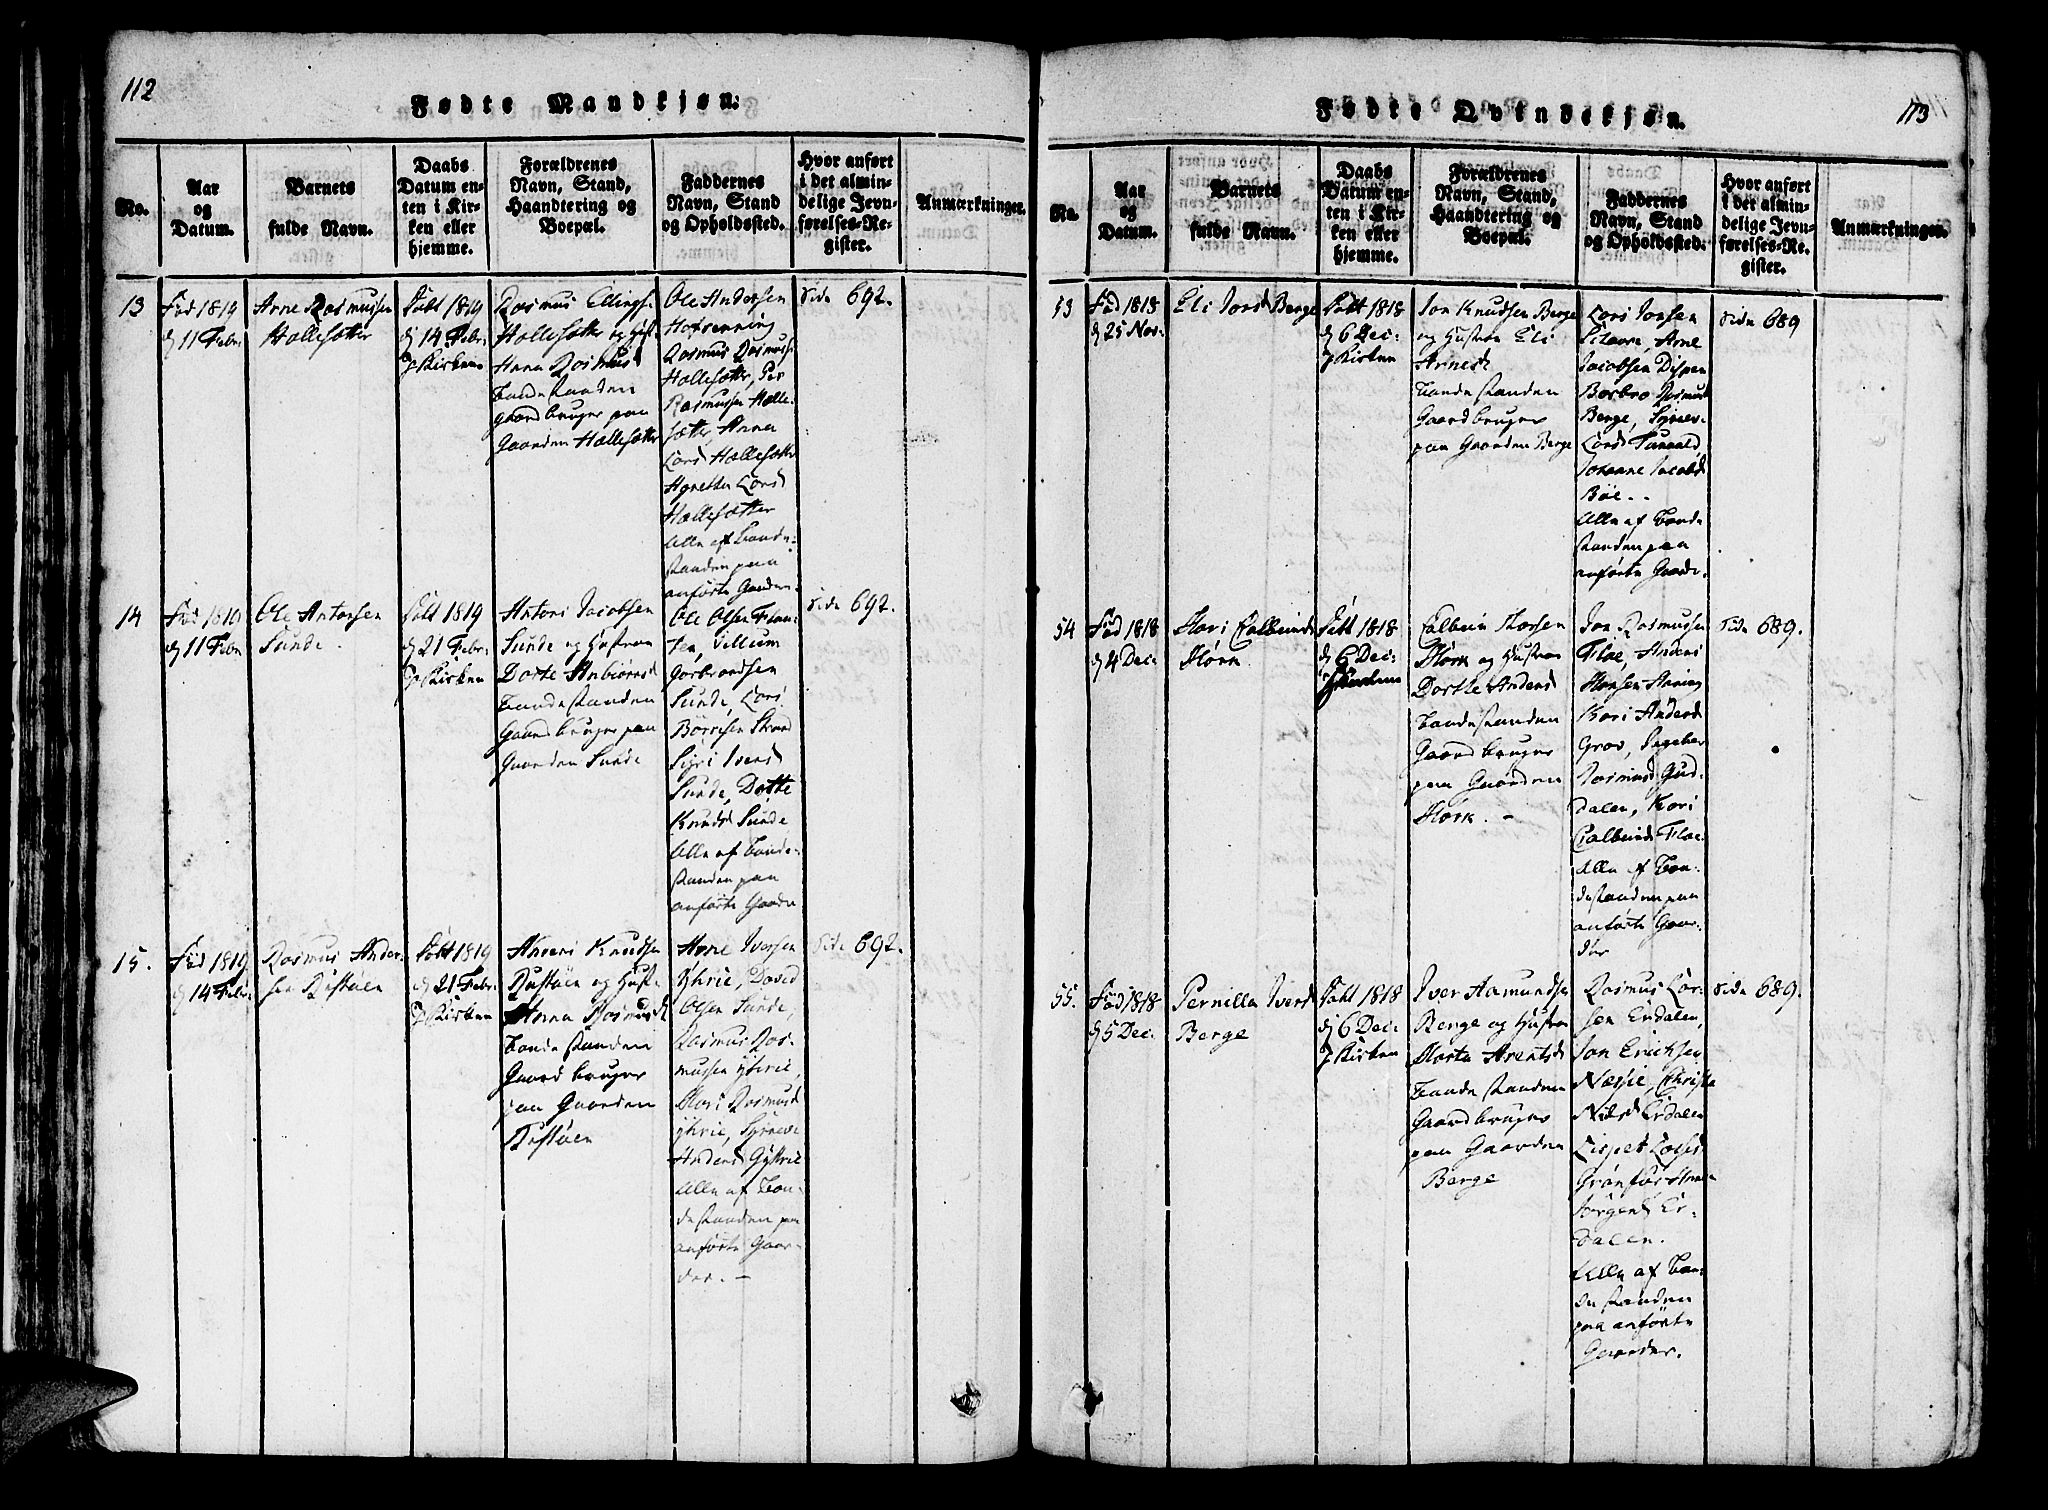 112
Fødte Mandkjøn.
No.
Aar
og
Datum.
Barnets
fulde Navn.
Daabs
Datum en-
ten i Kir-
ken eller
hjemme.
Forældrenes
Navn, Stand,
Haandtering og
Boepæl.
Faddernes
Navn, Stand
og Opholdssted.
Hvor anført
i det almin-
delige Jevn-
førelses-Re-
gister.
Anmærkninger.
13
Fød 1819
d 11 Febr
Arne Rasmussen
Hallesætter
Døbt 1819
d 14 Febr:
i Kirken
Rasmus Ellings
Hallesætter og
Anna Rasmusd
Bondestanden
Gaardbruger paa
Gaarden Hallesætter
Ole Andersen
Rasmus Rasmus
Hallesætter, Per
Rasmussen Halle-
sætter, Anna
Larsd Hallesætter
Agnethe Larsd
Hallesætter
Alle af Bonde-
standen paa
anførte Gaarder
Side 692.
14
Fød 1819
d 11 Febr
Ole Antonsen
Sunde
Døbt 1819
d 21 Febr:
i Kirken
Antoni Jacobsen
Sunde og Hustrue
Dorte Anbiørnsd
Bondestanden
Gaardbruger paa
Gaarden Sunde
Ole Olsen
Villum
Gorbrandsen
Sunde, Lars
Børresen
Sigri Iversd
Sunde, Dorthe
Knudsd Sunde
Alle af Bonde-
standen paa
anførte Gaarde
Side 692.
15.
Fød 1819
d 14 Febr
Rasmus Ander-
sen
Døbt 1819
d 21 Febr:
i Kirken
Anders Knudsen
og Hustr
Anna Rasmusd
Bondestanden
Gaardbruger
paa Gaarden
Arne Iversen
Yhrie, David
Olsen Sunde,
Rasmus Ras-
mussen Yhrie,
Mari Rasmusd
Yhrie, Synneve
Andersd
Alle af Bon-
destanden paa
anførte Gaar-
der. –
Side 692.
113
Fødte Qvindekjøn.
No.
Aar
og
Datum.
Barnets
fulde Navn.
Daabs
Datum en-
ten i Kir-
ken eller
hjemme.
Forældrenes
Navn, Stand,
Haandtering og
Boepæl.
Faddernes
Navn, Stand
og Opholdssted.
Hvor anført
i det almin-
delige Jevn-
førelses-Re-
gister.
Anmærkninger.
53
Fød 1818
d 25 Nov:
Eli Jonsd Berge
Døbt 1818
d 6 Dec:
i Kirken
Jon Knudsen Berge
og Hustrue Eli
Arnesd
Bondestanden
Gaardbruger
paa Gaarden Berge
Lars Jonsen
Arne
Jacobsen
Barbro Rasmusd
Berge,
Larsd
Johanne Jacobsd
Bøe. -
Alle af Bonde
standen paa
anførte Gaarde.
Side 689
54
Fød 1818
d 4 Dec:
Døbt 1818
d 6 Dec:
i Kirken
og Hustrue
Dorthe Andersd
Bondestanden
Gaardbruger
paa Gaarden
Jon Rasmussen
Floe, Anders
Hansen
Kari Andersd
Grov, Ingebor
Rasmusd Gud-
dalen, Kari
Floe
Alle af Bon-
destanden paa
anførte Gaar-
der
Side 689.
55.
Fød 1818
d 5 Dec:
Pernilla Iversd
Berge
Døbt 1818
d 6 Dec:
i Kirken
Iver Asmundsen
Berge og Hustrue
Marta Arentsd
Bondestanden
Gaardbruger
paa Gaarden
Berge
Rasmus Lar-
sen Erdalen,
Jon Ericksen
Nessie, Christe
Nilsd Erdalen
Lispet
Jørgensd Er-
dalen.
Alle af Bon-
destanden
paa anførte
Gaarder.
Side 689.